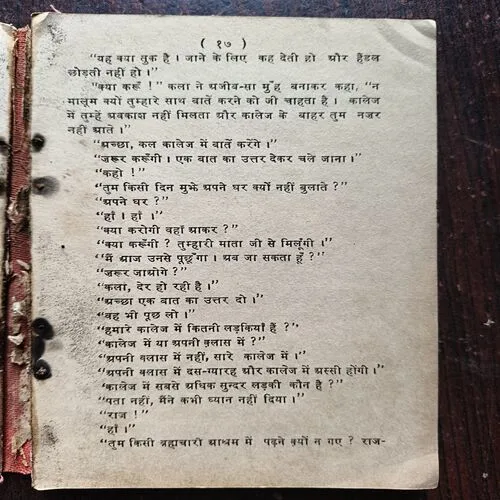 ( १७ )
"यह क्या तुक है । जाने के लिए कह देती हो और हैंडल
छोड़ती नहीं हो ।"
"क्या करूँ !" कला ने अजीब-सा मुँह बनाकर कहा, "न
मालूम क्यों तुम्हारे साथ बातें करने को जी चाहता है । कालेज
में तुम्हें अवकाश नहीं मिलता और कालेज के बाहर तुम नजर
नहीं आते ।"
"अच्छा, कल कालेज में बातें करेंगे ।"
"जरूर करूँगी । एक बात का उत्तर देकर चले जाना ।"
"कहो !"
"तुम किसी दिन मुझे अपने घर क्यों नहीं बुलाते ?"
"अपने घर ?"
"हाँ । हाँ ।"
"क्या करोगी वहाँ आकर ?"
"क्या करूँगी ? तुम्हारी माता जी से मिलूँगी ।"
"मैं आज उनसे पूछूँगा । अब जा सकता हूँ ?"
"जरूर जाओगे ?"
"कला, देर हो रही है ।"
"अच्छा एक बात का उत्तर दो ।"
"वह भी पूछ लो ।"
"हमारे कालेज में कितनी लड़कियाँ हैं ?"
"कालेज में या अपनी क्लास में ?"
"अपनी क्लास में नहीं, सारे कालेज में ।"
"अपनी क्लास में दस-ग्यारह और कालेज में अस्सी होंगी ।"
"कालेज में सबसे अधिक सुन्दर लड़की कौन है ?"
"पता नहीं, मैंने कभी ध्यान नहीं दिया ।"
"राज !"
"हाँ ।"
"तुम किसी ब्रह्मचारी आश्रम में पढ़ने क्यों न गए ? राज-